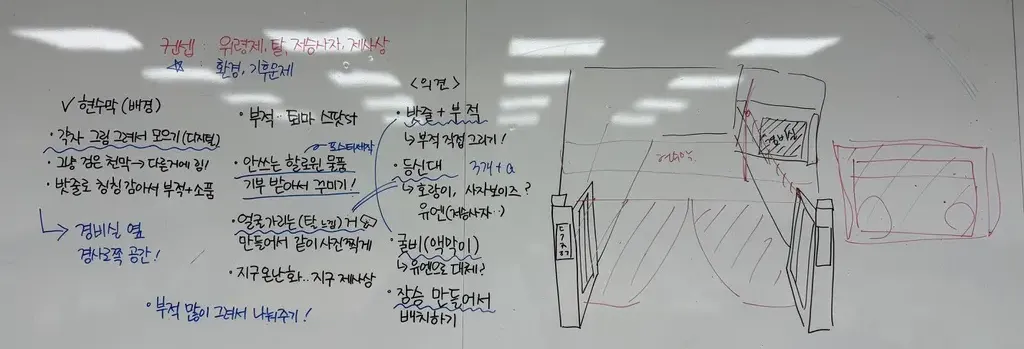 컨셉 : 위령제, 탈, 저승사자, 제사상
환경, 기후문제
✓ 현수막 (배경)
· 각자 그림 그려서 모으기 (디지털)
· 그냥 검은 천막 → 다른거에 힘!
· 밧줄로 칭칭 감아서 부적+소품
↳ 경비실 옆
경사로쪽 공간!
· 부적·· 퇴마 스팟
→ 포스터제작
· 안쓰는 할로윈 물품
기부 받아서 꾸미기!
· 얼굴가리는 (탈 느낌) 거
만들어서 같이 사진찍게
· 지구온난화.. 지구 제사상
· 부적 많이 그려서 나눠주기!
<의견>
· 밧줄 + 부적
↳ 부적 직접 그리기!
· 등신대 3개+α
↳ 호랑이, 사자보이즈?
유엔 (저승사자··)
· 굴비 (액막이)
↳ 유엔으로 대체?
· 장승 만들어서
배치하기
경비실
현수막